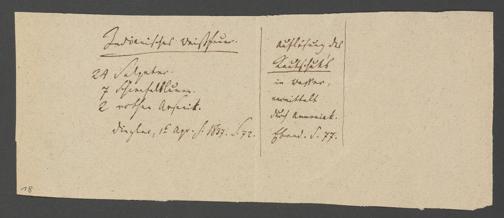 Indianisches Weißfeuer.
24 Salpeter.
7 Schwefelblumen.
2 rothen Arsenik.
Dingler, 1ˢ Apr. H. 1837. S. 72.
Auflösung des
Kautschuks
in Wasser,
vermittelt
durch Ammoniak.
Ebend. S. 77.
18